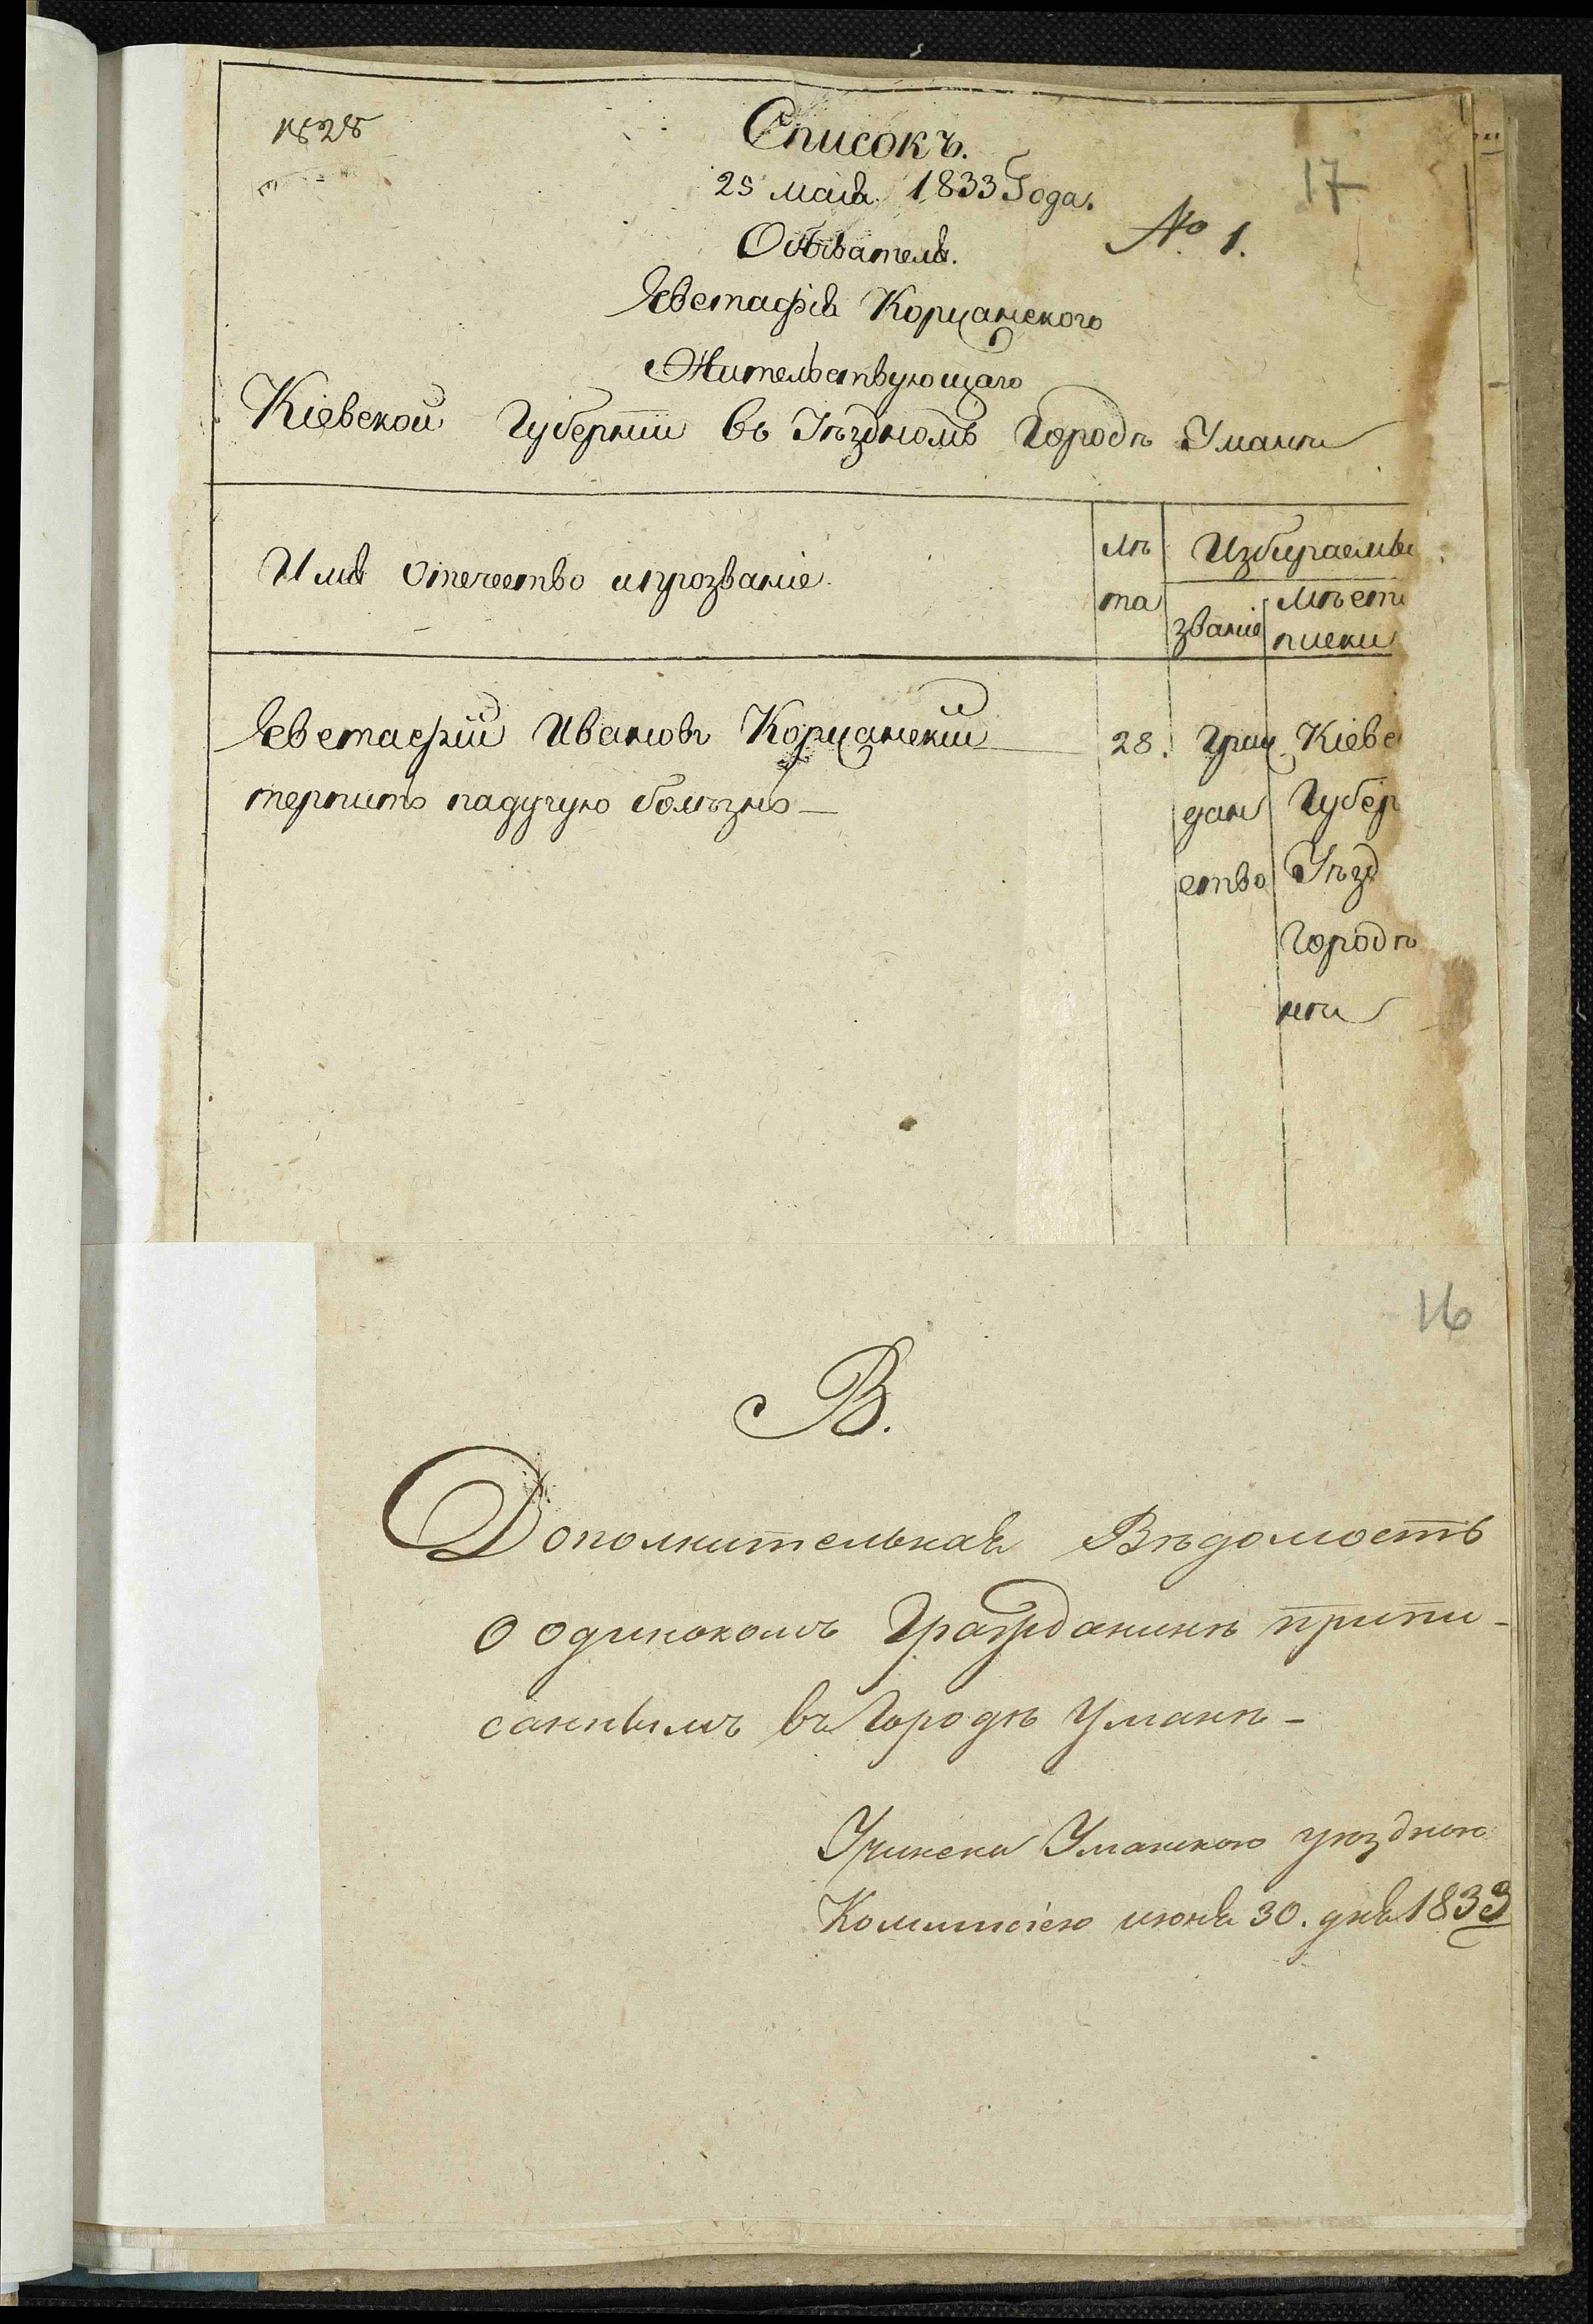 1828
Списокъ.
25 маія 1833 Года.
17
№ 1.
Обывателя.
Евстафія Корчанского
Жительствующаго
Кіевской Губерніи въ Уѣздномъ Городѣ Уманѣ
Имя Отечество ипрозваніе.
лѣ
та
Избираемые
званіе
мѣсто
писки
Евстафій Ивановъ Корчанскій 28. Граж Кіевс
терпитъ падучую болѣзнь — дан Губер
ство Уѣзд
Городѣ
нѣ
16
В.
Дополнительная Вѣдомость
о одинокомъ Гражданинѣ припи-
саннымъ въ Городѣ Уманѣ -
Учинена Уманскою уѣздною
Коммисіею июня 30. дня 1833